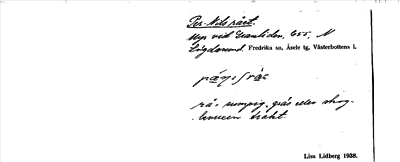 Per-Nils rået.
Myr vid Granliden, 655, N
Lögdasund. Fredrika sn, Åsele tg, Västerbottens l.
rå = sumpig, gräs eller skog-
bevuxen trakt.
Lisa Lidberg 1938.